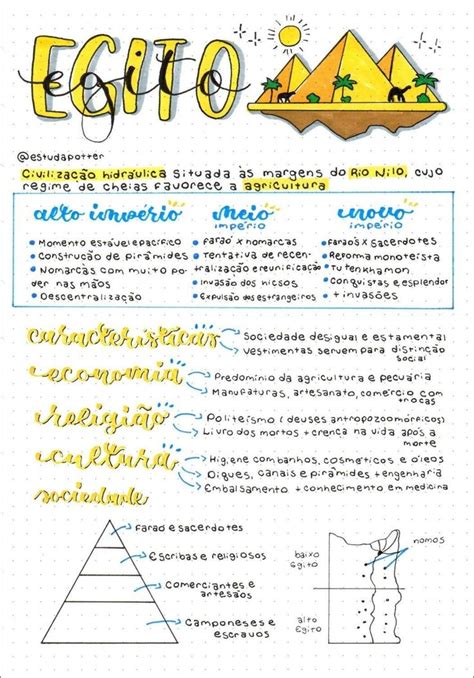 EGITO
egito
@estudapotter
Civilização hidráulica situada às margens do Rio Nilo, cujo
regime de cheias favorece a agricultura
alto império
• Momento estável e pacífico
• Construção de pirâmides
• Nomarcas com muito po
der nas mãos
• Descentralização
meio
império
• Faraó x nomarcas
• Tentativa de recen-
tralização e reunificação
• Invasão dos hicsos
• Expulsão dos estrangeiros
novo
império
• Faraós x sacerdotes
• Reforma monoteísta
• Tutenkhamon
• Conquistas e esplendor
• + invasões
características
Sociedade desigual e estamental
Vestimentas servem para distinção
social
economia
Predomínio da agricultura e pecuária
Manufaturas, artesanato, comércio com
trocas
religião
Politeísmo (deuses antropozoomórficos)
Livro dos mortos + crença na vida após a
morte
cultura
Higiene com banhos, cosméticos e óleos
Diques, canais e pirâmides + engenharia
Embalsamento + conhecimento em medicina
sociedade
Faraó e sacerdotes
Escribas e religiosos
Comerciantes e
artesãos
Camponeses e
escravos
nomos
baixo
Egito
alto
Egito